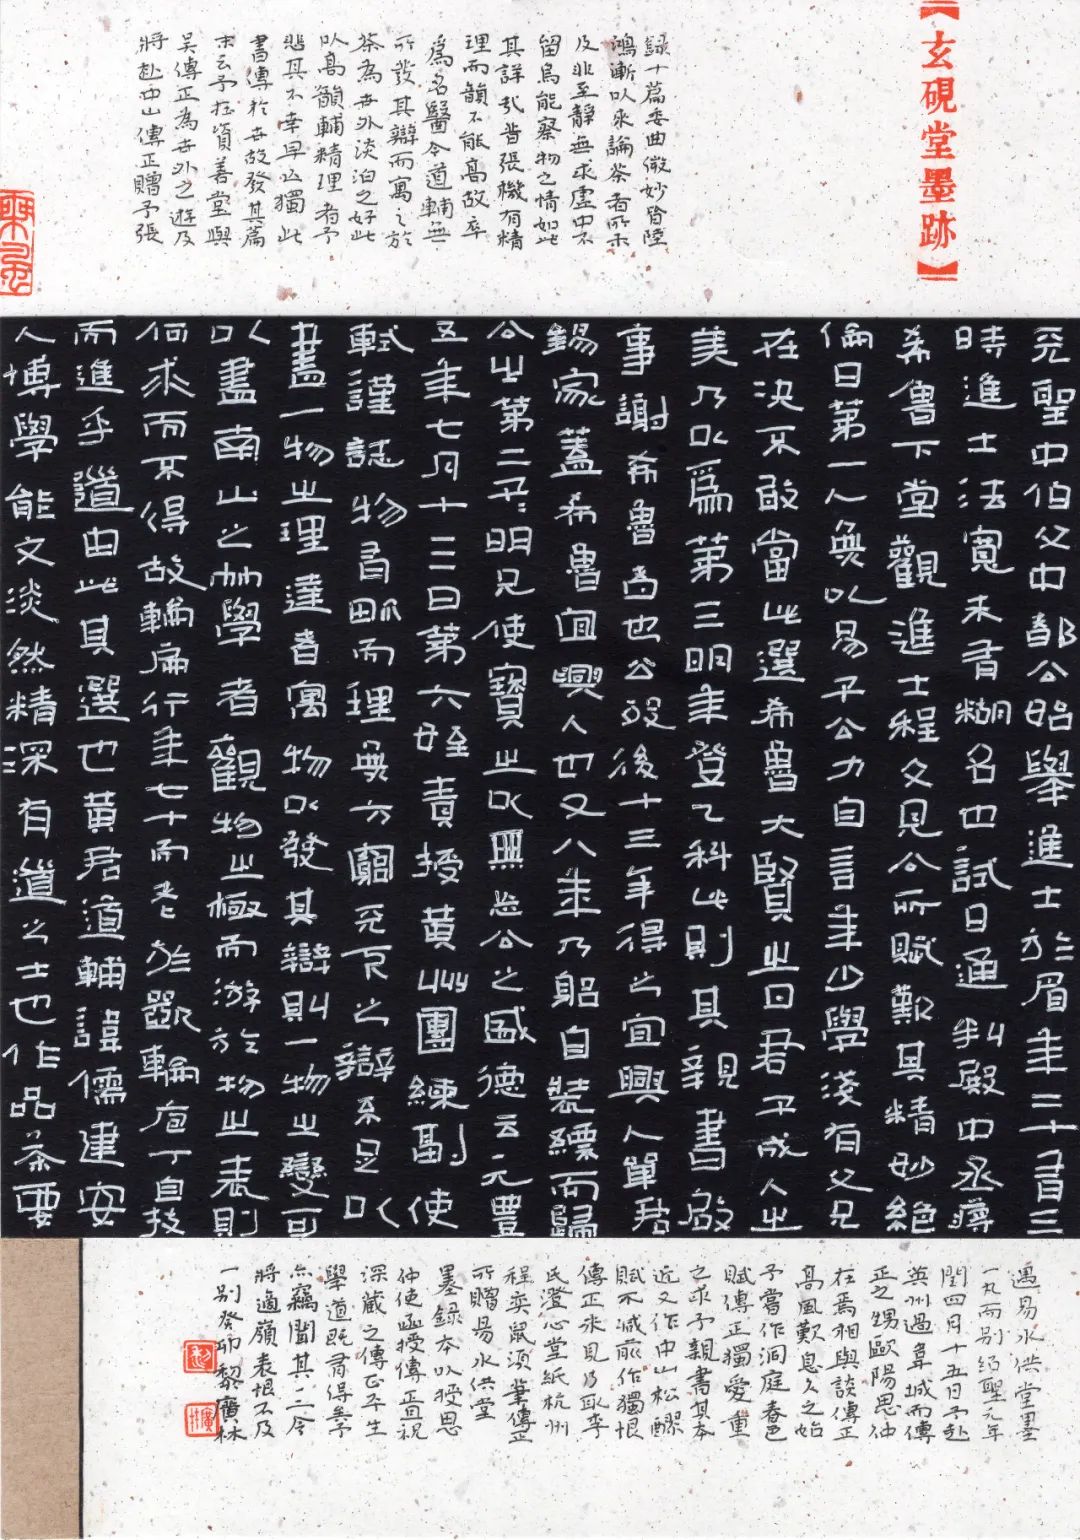 【玄硯堂墨跡】
天聖中伯父中都公始舉進士於眉年二十有三
時進士法寬未有糊名也試日通判殿中丞蔣
希魯下堂觀進士程文見公所賦歎其精妙絕
倫曰第一人無以易子公力自言年少學淺有父兄
在決不敢當此選希魯大賢之曰君子成人之
美乃以為第三明年登乙科此則其親書啟
事謝希魯者也公歿後十三年得之宜興人單君
錫家蓋希魯宜興人也又八年乃躬自裝縹而歸
公之第二子:明兄使寶之以無忘公之盛德云元豐
五年七月十三日第六姪責授黃州團練副使
軾謹誌物有畛而理無方窮天下之辯不足以
盡一物之理達者寓物以發其辯則一物之變可
以盡南山之竹學者觀物之極而游於物之表則
何求而不得故輪扁行年七十而老於斲輪庖丁自技
而進乎道由此其選也黃君道輔諱儒建安
人博學能文淡然精深有道之士也作品茶要
錄十篇委曲微妙皆陸
鴻漸以來論茶者所未
及非至靜無求虛中不
留烏能察物之情如此
其詳哉昔張機有精
理而韻不能高故卒
為名醫今道輔無
所發其辯而寓之於
茶為世外淡泊之好此
以高韻輔精理者予
悲其不幸早亡獨此
書傳於世故發其篇
末云予在資善堂與
吳傅正為世外之遊及
將赴中山傅正贈予張
遇易水供堂墨
一丸而別紹聖元年
閏四月十五日予赴
英州過韋城而傅
正之甥歐陽思仲
在焉相與談傅正
高風歎息久之始
予嘗作洞庭春色
賦傅正獨愛重
之求予親書其本
近又作中山松醪
賦不減前作獨恨
傅正未見乃取李
氏澄心堂紙杭州
程奕鼠須筆傅正
所贈易水供堂
墨錄本以授思
仲使面授傅正且祝
深藏之傅正平生
學道既有得矣予
亦竊聞其一二今
將適嶺表恨不及
一別癸卯黎廣林